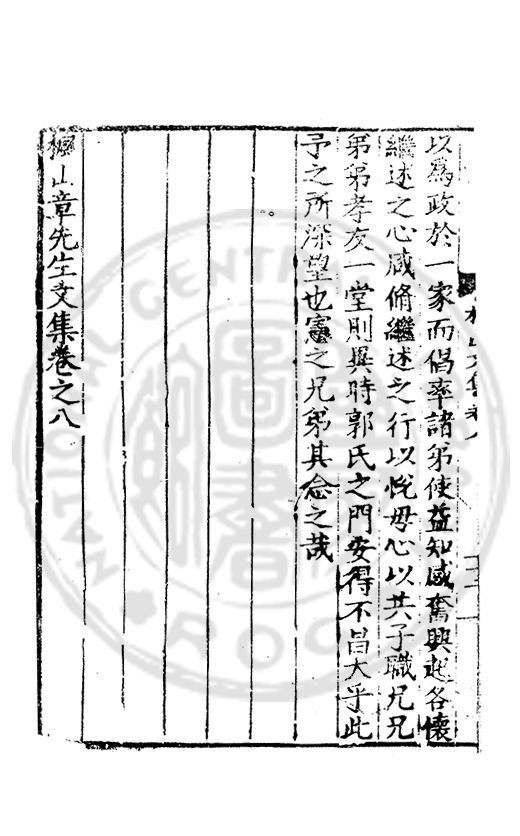 以爲政於一家而倡率諸弟使益知感奮興起各懷
繼述之心咸脩繼述之行以悅母心以共子職兄兄
弟弟孝友一堂則異時郭氏之門安得不昌大乎此
予之所深望也憲之兄弟其念之哉
楓山章先生文集卷之八